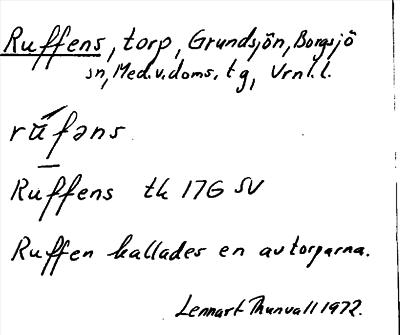 Ruffens, torp, Grundsjön, Borgsjö
sn, Med.v.doms. tg, Vrnl.l.
rúfəns
Ruffens tk 17G SV
Ruffen kallades en av torparna.
Lennart Thunvall 1972.